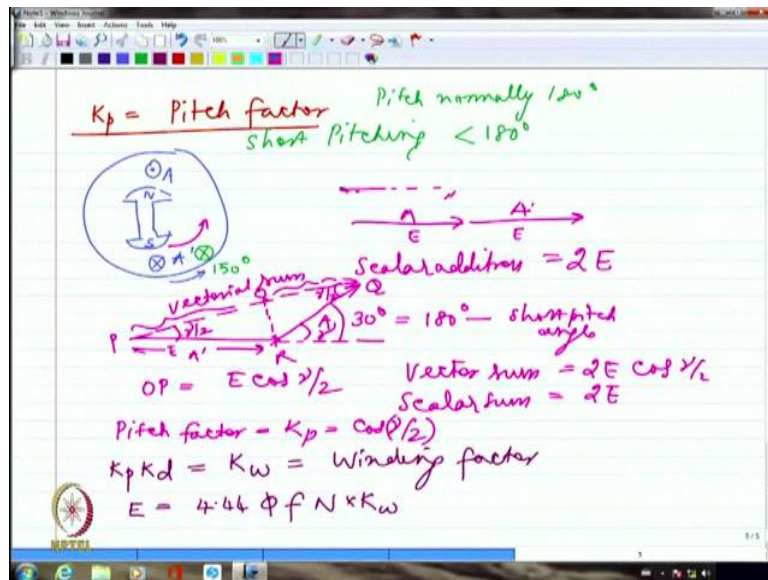 Note1 - Windows Journal
File Edit View Insert Actions Tools Help
150%
Kp = Pitch factor
Pitch normally 180°
Short Pitching < 180°
A
N
S
A'
150°
A A'
E E
Scalar addition = 2E
Vectorial sum
O γ/2 Q
P γ/2 A γ 30° = 180° - short pitch
angle
E A' R
OP = E cos γ/2
Vector sum = 2E cos γ/2
Scalar sum = 2E
Pitch factor = Kp = cos(γ/2)
Kp Kd = Kw = Winding factor
E = 4.44 φ f N × Kw
NPTEL
5/5
5